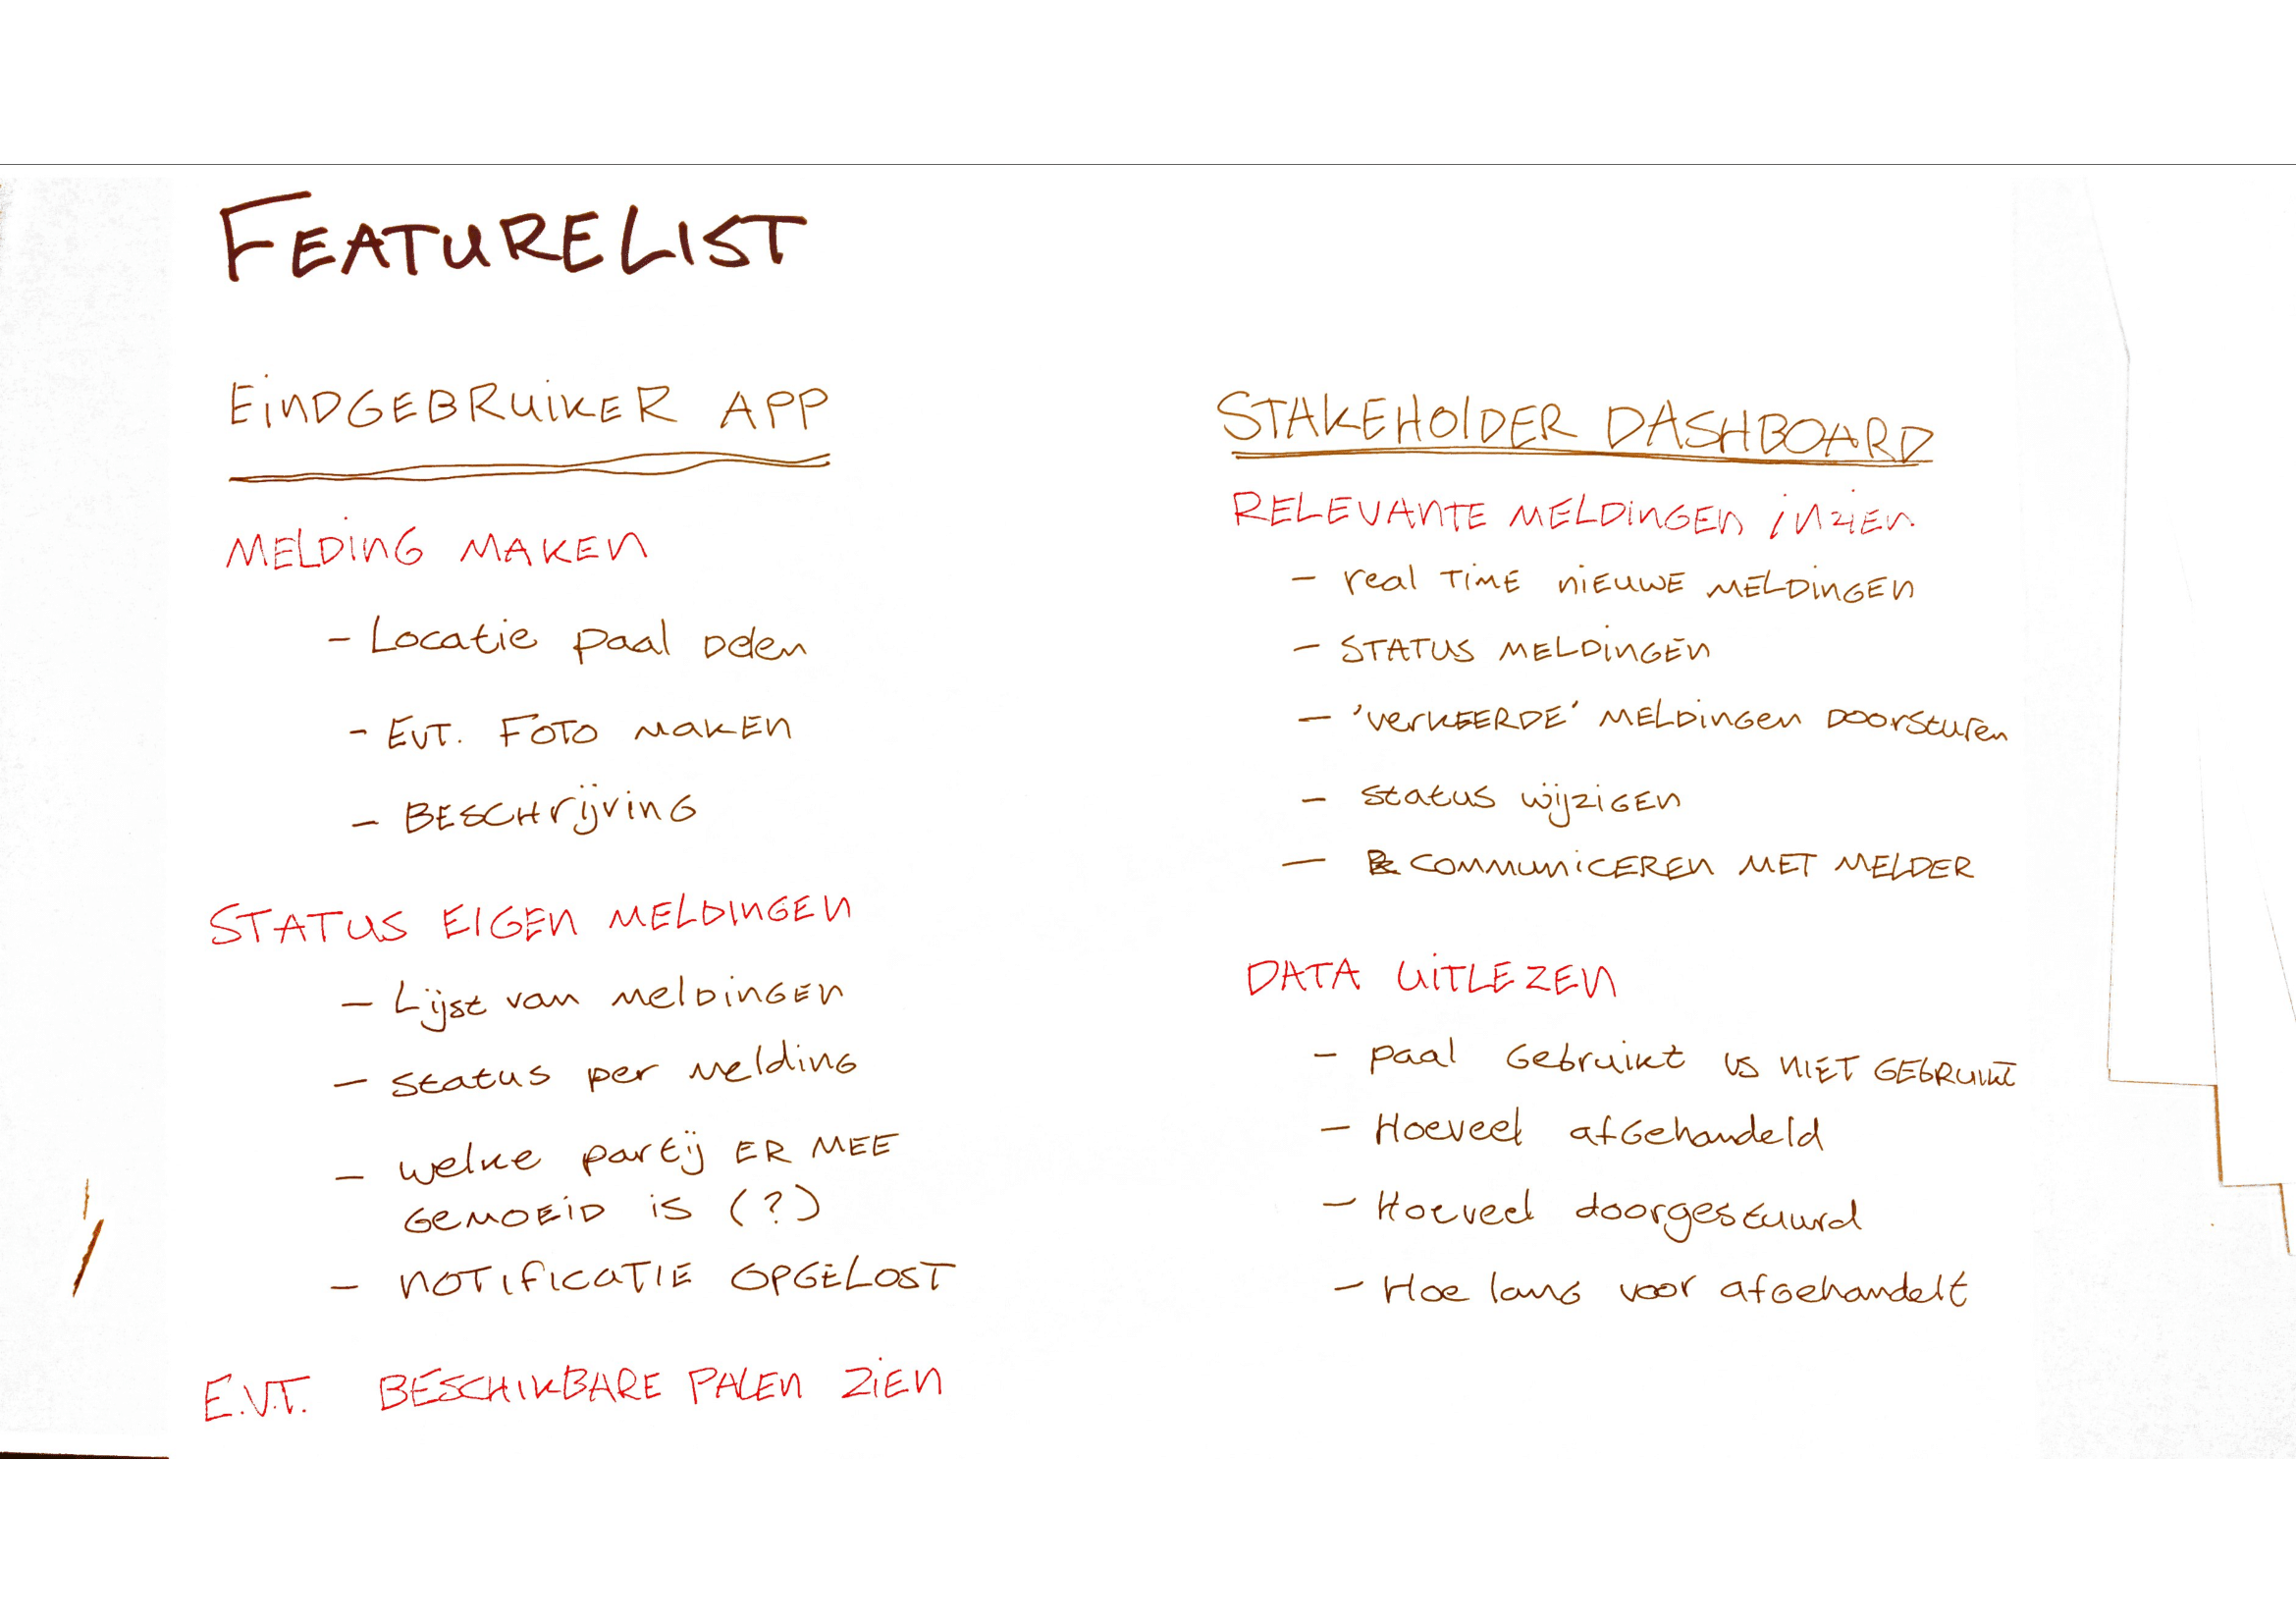 FEATURELIST
EINDGEBRUIKER APP
MELDING MAKEN
- Locatie paal Delen
- EVT. FOTO MAKEN
- BESCHrijving
STATUS EIGEN MELDINGEN
- Lijst van MelDINGEN
- status per melding
- welke partij ER MEE
GEMOEID is (?)
- NOTIFICATIE OPGELOST
E.V.T. BESCHIKBARE PALEN ZIEN
STAKEHOLDER DASHBOARD
RELEVANTE MELDINGEN INZIEN
- real TIME NIEUWE MELDINGEN
- STATUS MELDINGEN
- 'verKEERDE' MELDINGEN DOORSTUREN
- status wijzigen
- COMMUNICEREN MET MELDER
DATA UITLEZEN
- paal Gebruikt vs NIET GEBRUIKT
- Hoeveel afgehandeld
- Hoeveel doorgestuurd
- Hoe lang voor afgehandelt